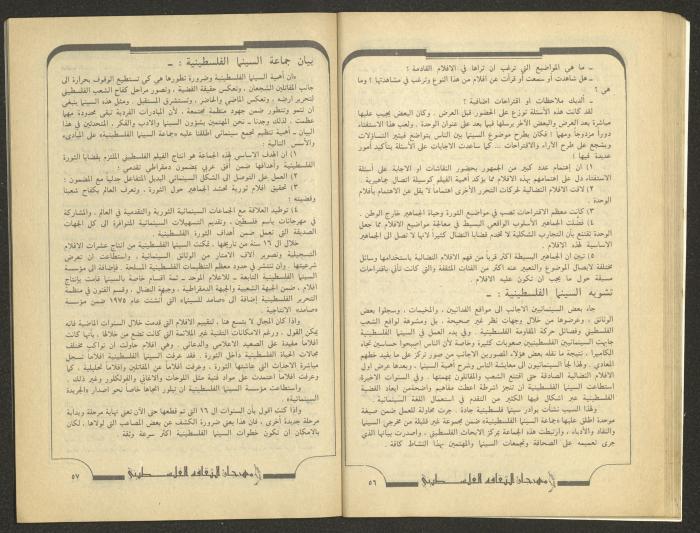 ـ ما هي المواضيع التي ترغب ان تراها في الافلام القادمة ؟
ـ هل شاهدت أو سمعت أو قرأت عن افلام من هذا النوع وترغب في مشاهدتها ؟ وما
هي ؟
ـ ألديك ملاحظات او اقتراحات اضافية ؟
لقد كانت هذه الأسئلة توزع على الحضور قبل العرض . وكان البعض يجيب عليها
مباشرة بعد العرض والبعض الآخر يرسلها فيما بعد على عنوان الوحدة . ولعب هذا الاستفتاء
دورا مزدوجا ومهما : فكان يطرح موضوع السينما بين الناس بتواضع فيثير التساؤلات
ويشجع على طرح الآراء والاقتراحات ... كما ساعدت الاجابات على الأسئلة بتأكيد أمور
عديدة فيها :
١) ان إهتمام عدد كبير من الجمهور بحضور النقاشات او الاجابة على أسئلة
الاستفتاء دل على إهتمامهم بهذه الافلام مما يؤكد أهمية الفيلم كوسيلة اتصال جماهيرية .
٢) لاقت الافلام النضالية لحركات التحرر الأخرى اهتماما لا يقل عن الاهتمام بأفلام
الوحدة .
٣) كانت معظم الاقتراحات تصب في مواضيع الثورة وحياة الجماهير خارج الوطن .
٤) فضلت الجماهير الأسلوب الواقعي البسيط في معالجة مواضيع الافلام مما جعل
الوحدة تقتنع بأن التجارب الشكلية لا تخدم قضايا النضال كثيرا لانها لا تصل الى الجماهير
الاساسية لهذه الافلام .
٥) تبين ان الجماهير البسيطة اكثر قربا من فهم الافلام النضالية باستخدامها وسائل
مختلفة لايصال الموضوع والتعبير عنه اكثر من الفئات المثقفة والتي كانت تأتي باقتراحات
مسبقة حول ما يجب ان تكون عليه الافلام .
تشويه السينما الفلسطينية : ـ
جاء بعض السينمائيين الاجانب الى مواقع الفدائيين ، والمخيمات ، وسجلوا بعض
الوثائق ، وعرضوها من خلال وجهات نظر غير صحيحة ، بل ومشوهة لواقع الشعب
الفلسطيني وفصائل حركة المقاومة الفلسطينية . وفي بدء العمل في السينما الفلسطينية
جابهت السينمائيين الفلسطينيين صعوبات كثيرة وخاصة لأن الناس اصبحوا حساسين تجاه
الكاميرا ، نتيجة ما نقله بعض هؤلاء المصورين الاجانب من صور تركز على ما يفيد خطهم
المعادي . ولهذا لجأ السينمائيون الى معايشة الناس وشرح أهمية السينما ، وبعدها عرض اولى
الافلام النضالية الصادقة حتى اقتنع الشعب والمقاتلون بمهمتها . وفي السنوات الاخيرة
استطاعت السينما الفلسطينية ان تنجز اشرطة اعطت مفاهيم واضحة عن ابعاد القضية
الفلسطينية عبر اشكال فيها الكثير من التقدم في استعمال اللغة السينمائية .
ولهذا السبب نشأت بوادر سينما فلسطينية جادة . جرت محاولة للعمل ضمن صيغة
موحدة اطلق عليها «جماعة السينما الفلسطينية» ضمن مجموعة غير قليلة من مخرجي السينما
والنقاد والأدباء ، وارتبطت هذه الجماعة بمركز الابحاث الفلسطيني ، واصدرت بيانها الذي
جرى تعميمه على الصحافة وتجمعات السينما والمهتمين بهذا النشاط كافة .
مهرجان الثقافة الفلسطيني
٥٦
بيان جماعة السينما الفلسطينية : ـ
«ان أهمية السينما الفلسطينية وضرورة تطورها هي كي تستطيع الوقوف بحرارة الى
جانب المقاتلين الشجعان ، وتعكس حقيقة القضية ، وتصور مراحل كفاح الشعب الفلسطيني
لتحرير ارضه ، وتعكس الماضي والحاضر ، وتستشرق المستقبل . ومثل هذه السينما ينبغي
ان تنمو وتتطور ضمن جهود منظمة مجتمعة ، لأن المبادرات الفردية تبقى محدودة مهما
عظمت . لذلك وجدنا ـ نحن المهتمين بشؤون السينما والادب والفكر ، المتحدثين في هذا
البيان ـ أهمية تنظيم تجمع سينمائي اطلقنا عليه «جماعة السينما الفلسطينية» على المبادىء
والأسس التالية :
١) ان الهدف الاساسي لهذه الجماعة هو انتاج الفيلم الفلسطيني الملتزم بقضايا الثورة
الفلسطينية وأهدافها ضمن أفق عربي بمضمون دمقراطي تقدمي :
٢) العمل على التوصل الى الشكل السينمائي البديل المتفاعل جدليا مع المضمون :
٣) تحقيق افلام ثورية تحشد الجماهير حول الثورة ، وتعرف العالم بكفاح شعبنا
وقضيته :
٤) توطيد العلاقة مع الجماعات السينمائية الثورية والتقدمية في العالم . والمشاركة
في مهرجانات باسم فلسطين ، وتقديم التسهيلات السينمائية المتوافرة الى كل الجهات
الصديقة التي تعمل ضمن أهداف الثورة الفلسطينية
خلال ال ١٦ سنة من تاريخها . تمكنت السينما الفلسطينية من انتاج عشرات الافلام
التسجيلية وتصوير آلاف الامتار من الوثائق السينمائية ، واستطاعت ان تعرض
شرعيتها . وأن تنتشر في حدود معظم التنظيمات الفلسطينية المسلحة . فإضافة الى مؤسسة
السينما الفلسطينية التابعة ـ للاعلام الموحد ـ ثمة اقسام خاصة بالسينما قامت بإنتاج
افلام ، ضمن الجبهة الشعبية والجبهة الدمقراطية ، وجبهة النضال . وقسم الفنون في منظمة
التحرير الفلسطينية إضافة الى «صامد للسينما» التي أنشئت عام ١٩٧٥ ضمن مؤسسة
«صامد» الانتاجية
واذا كان المجال لا يتسع هنا ، لتقييم الافلام التي قدمت خلال السنوات الماضية فانه
يمكن القول . ورغم الامكانات التقنية غير الملائمة التي كانت تصنع من خلالها . بأنها كانت
افلاما مفيدة على الصعيد الاعلامي والدعائي . وهي افلام حاولت ان تواكب مختلف
مجالات الحياة الفلسطينية داخل الثورة . فقد عرفت السينما الفلسطينية افلاما تسجل
مباشرة الاحداث التي عاشتها الثورة . وعرفت افلاما عن المقاتلين وافلاما تحليلية ، كما
وعرفت افلاما اعتمدت على مواد فنية مثل اللوحات والاغاني والفولكلور وغير ذلك .
واستطاعت مؤسسة السينما الفلسطينية ان تبلور انجاها خاصا نحو اصدار «الجريدة
السينمائية»
واذا كنت أقول بأن السنوات ال ١٦ التي تم قطعها حتى الآن تعني نهاية مرحلة وبداية
مرحلة جديدة أخرى ، فان هذا يعني ضرورة الكشف عن بعض المصاعب التي لولاها ، لكان
بالامكان ان تكون خطوات السينما الفلسطينية اكثر سرعة وثقة .
مهرجان الثقافة الفلسطيني
٥٧